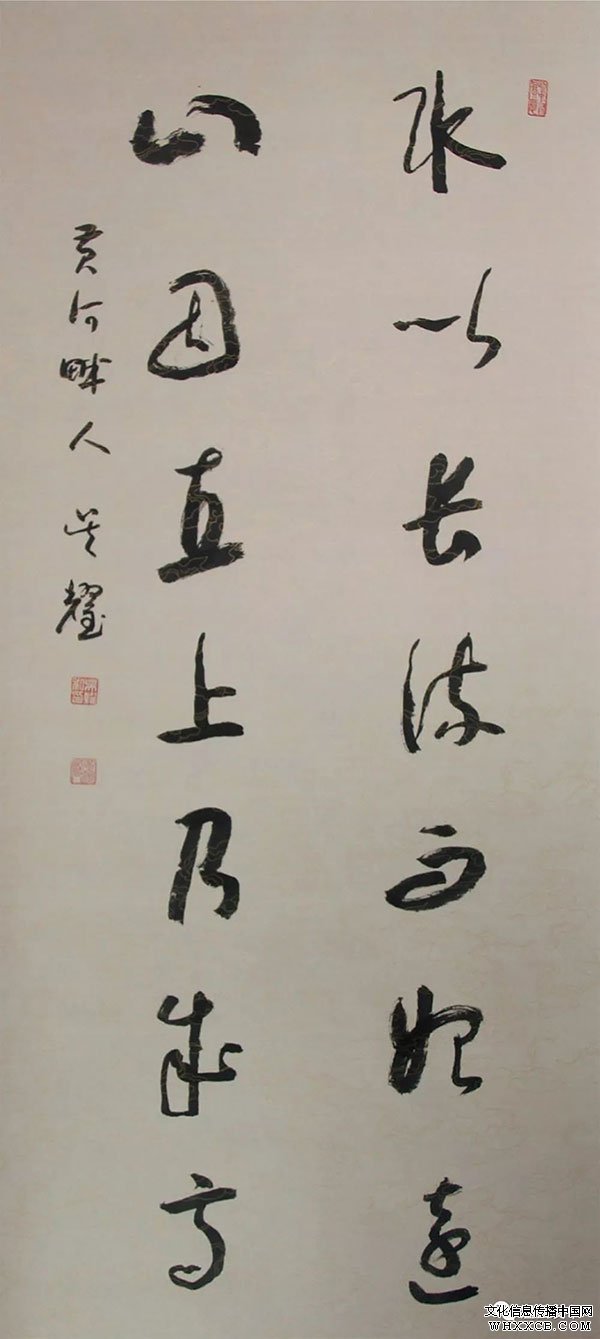 水以长流而始遠
山因直上乃成高
黄河畔人
文化信息传播中国网
WHXXCB.COM